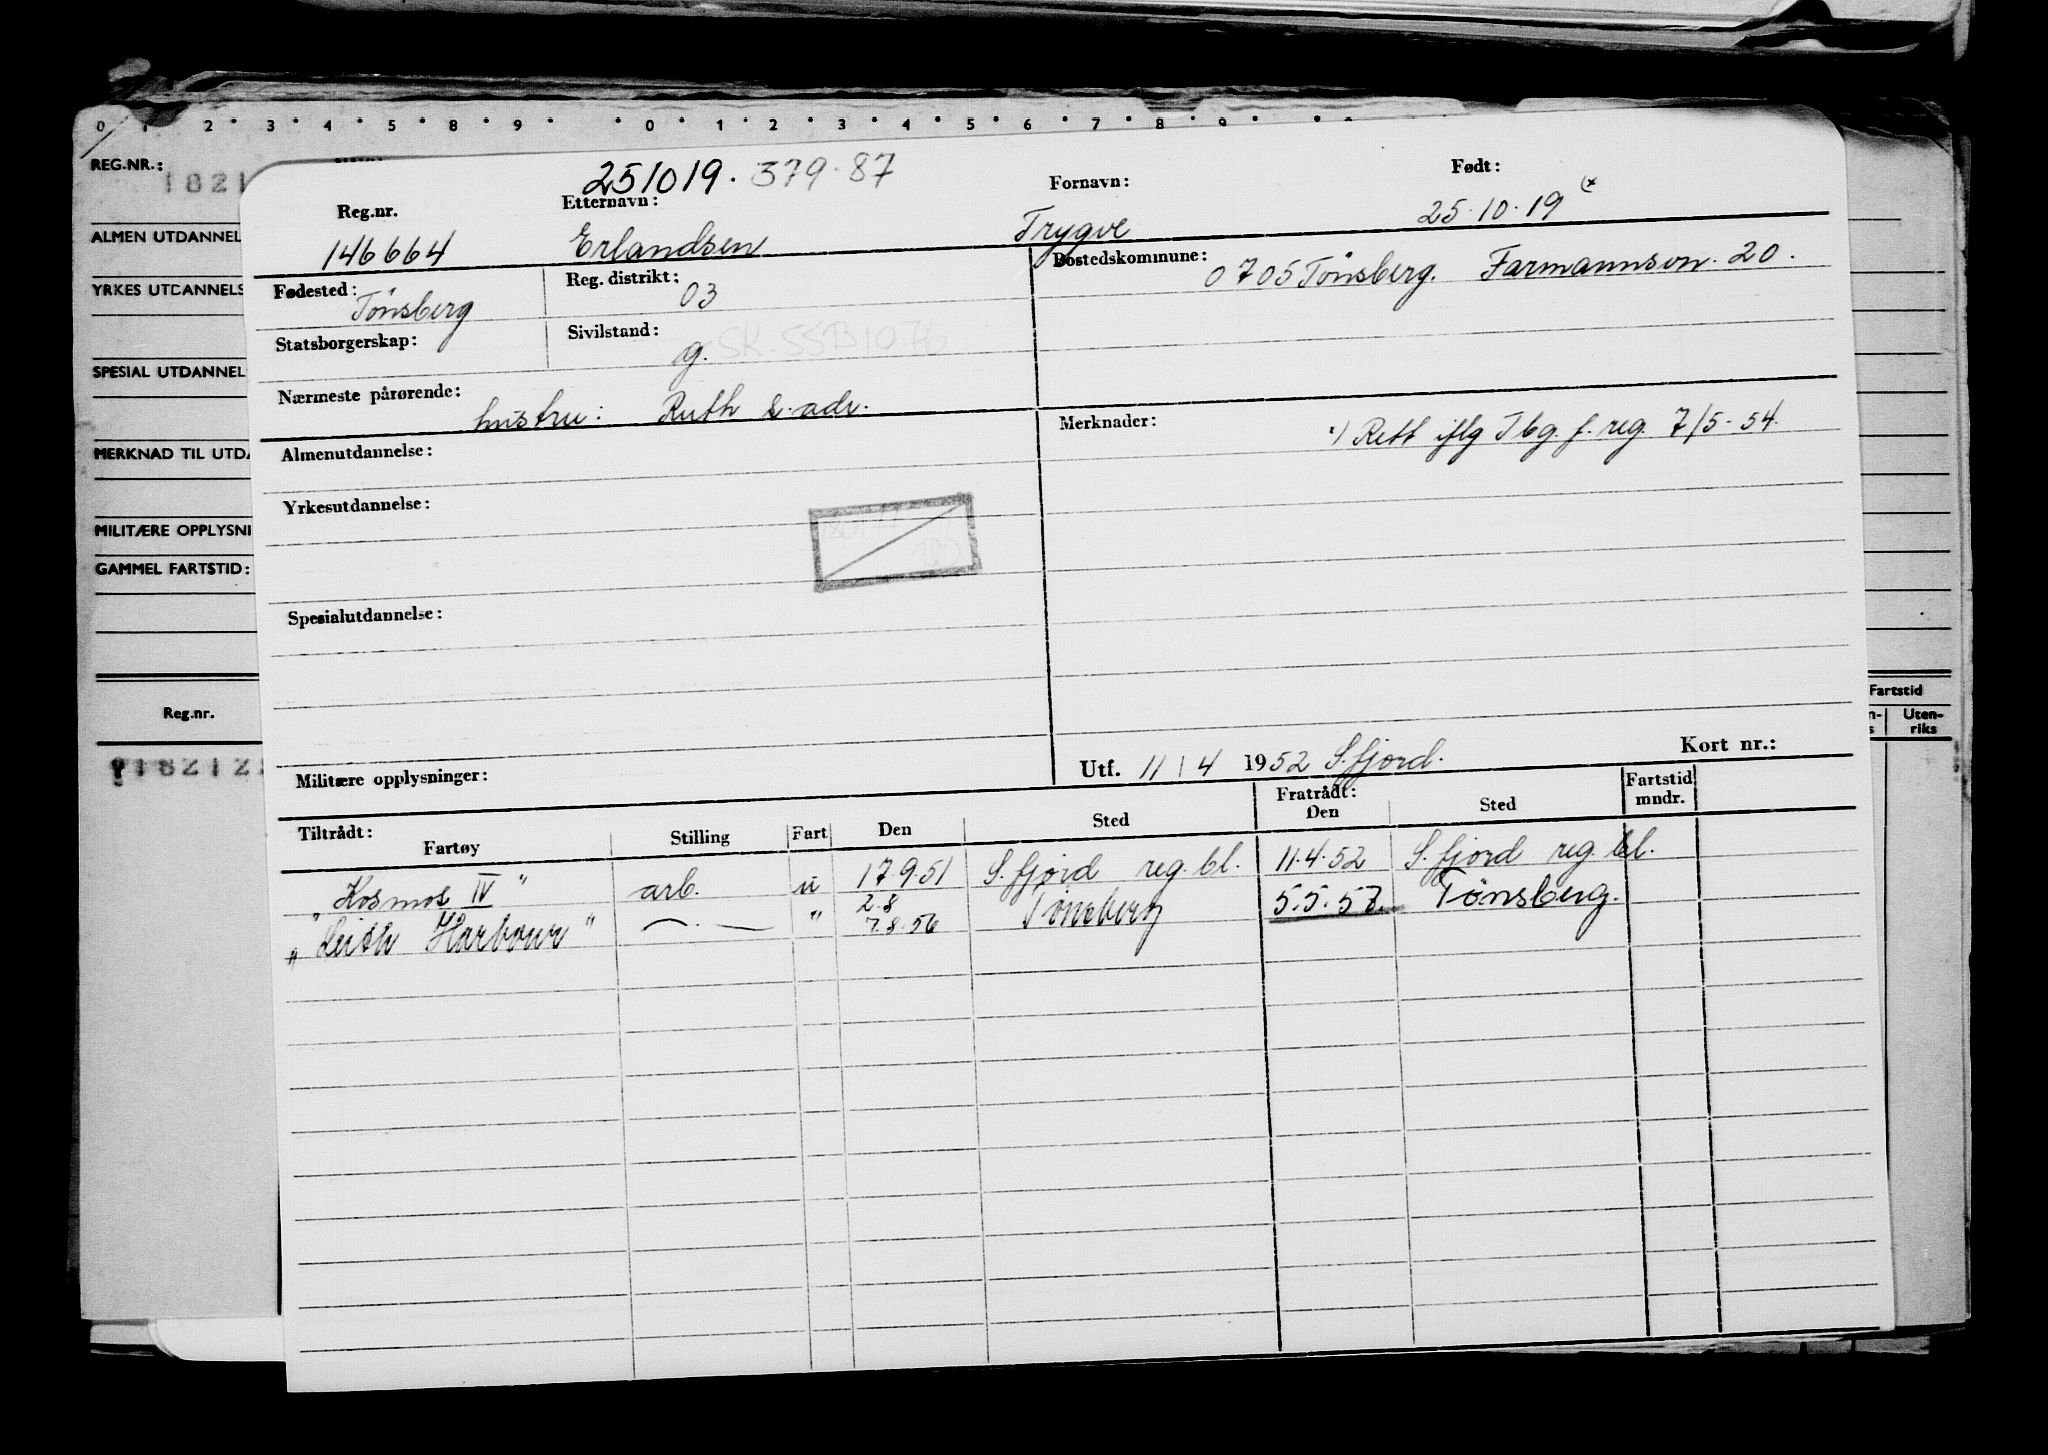 0 1 2 3 4 5 8 9 0 1 2 3 4 5 6 7 8 9
REG.NR.:
1821
ALMEN UTDANNEL
YRKES UTDANNELS
SPESIAL UTDANNEL
MERKNAD TIL UTDA
MILITÆRE OPPLYSNI
GAMMEL FARTSTID:
Reg.nr.
Fartstid
n- Uten-
s riks
251019. 379.87
Reg.nr. Etternavn: Fornavn: Født:
146664 Erlandsen Trygve 25.10.19 x)
Fødested: Tönsberg Reg. distrikt: 03 Bostedskommune: 0705 Tönsberg. Farmannsvn. 20.
Statsborgerskap: Sivilstand: g.
SK. SSB 10.76
Nærmeste pårørende: hustru: Ruth s. adr.
Merknader: x) Rett iflg Tbg. f. reg. 7/5-54.
Almenutdannelse:
Yrkesutdannelse:
Spesialutdannelse:
Militære opplysninger:
Utf. 11/4 1952 S.fjord. Kort nr.:
Tiltrådt: Fratrådt: Fartstid
Fartøy Stilling Fart Den Sted Den Sted mndr.
"Kosmos IV" arb. u 17.9.51 S.fjord reg. bl. 11.4.52 S.fjord reg. bl.
2.8
"Leith Harbour" — " — " 7.8.56 Tönsberg 5.5.57 Tönsberg.